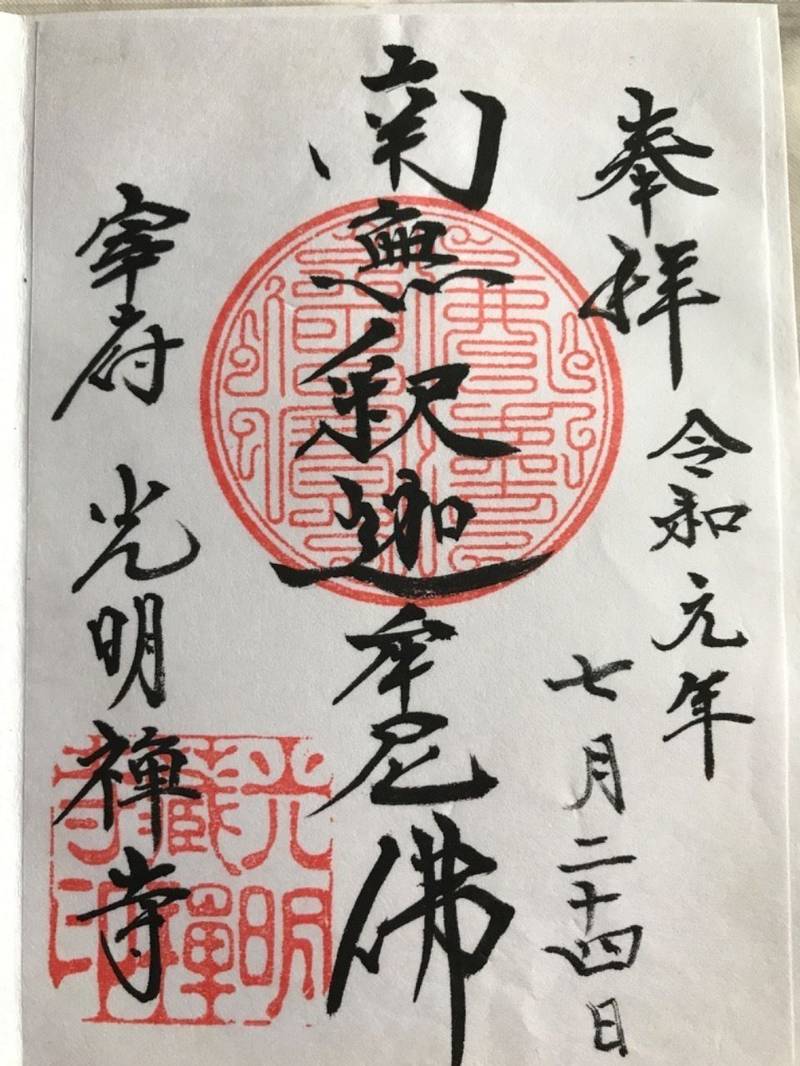 奉拝
令和元年
七月二十四日
南無釈迦牟尼佛
宰府 光明禅寺
光明
禅蔵
寺印